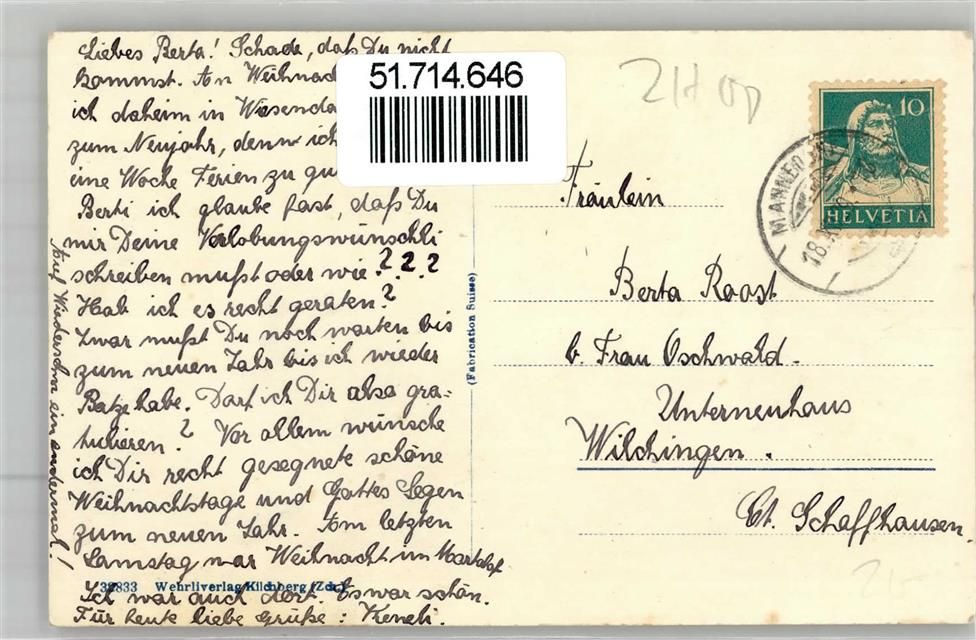 Liebes Berta! Schade, daß Du nicht
kommst. An Weihnach
ich daheim in Wiesenda
zum Neujahr, denn ich
eine Woche Ferien zu gu
Berti ich glaube fast, daß Du
mir Deine Verlobungswünschli
schreiben mußt oder wie???
Hab ich es recht geraten?
Zwar mußt Du noch warten bis
zum neuen Jahr bis ich wieder
Batze habe. Darf ich Dir also gra-
tulieren? Vor allem wünsche
ich Dir recht gesegnete schöne
Weihnachtstage und Gottes Segen
zum neuen Jahr. Am letzten
Samstag war Weihnacht im
Ich war auch dort. Es war schön.
Für heute liebe Grüße:
Auf Wiedersehn ein andermal!
32833 Wehrliverlag Kilchberg (Zch.)
(Fabrication Suisse)
51.714.646
10
HELVETIA
MANNED
18.
Fräulein
Berta Roost
b. Frau Oschwald.
Unterneuhaus
Wilchingen.
Ct. Schaffhausen.